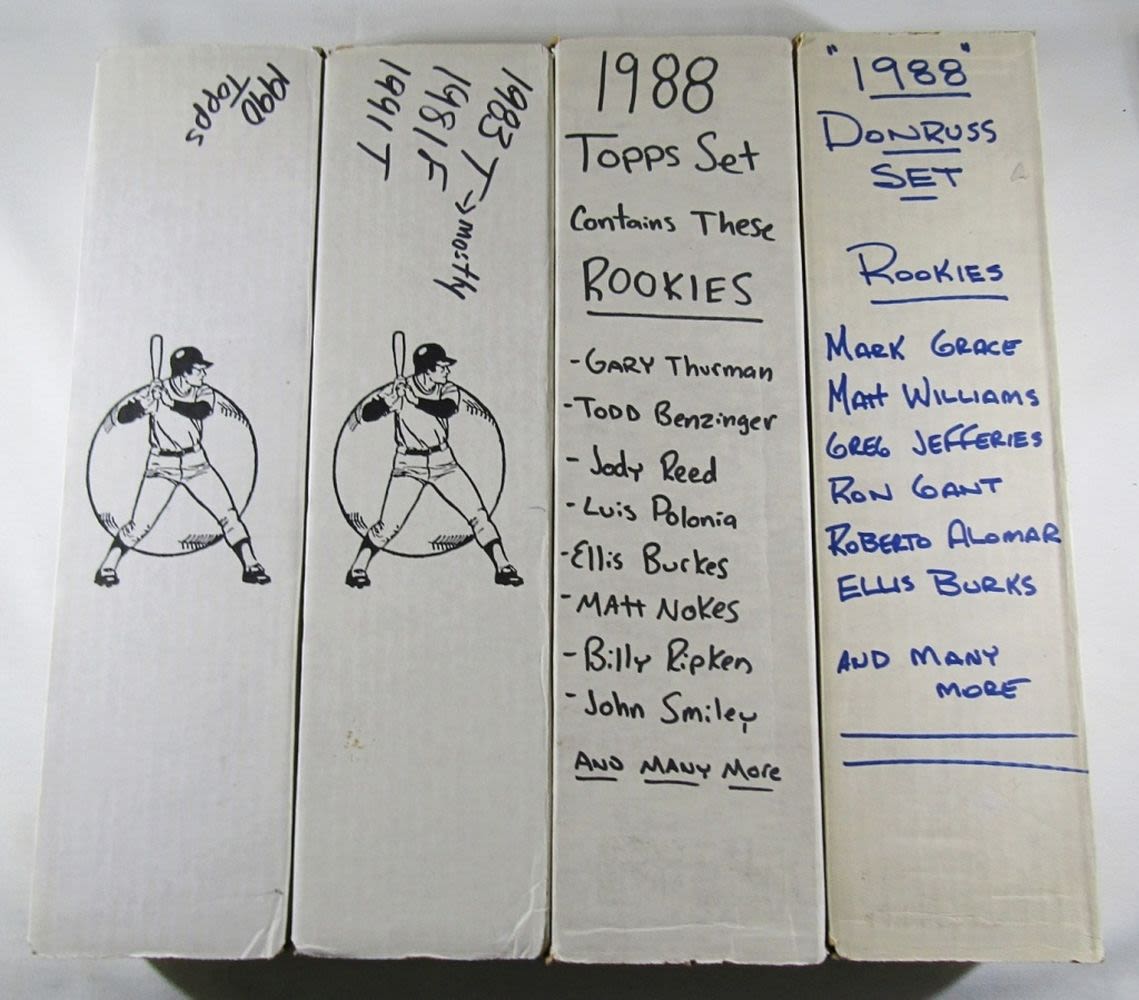 1990
Topps
1983 T → mostly
1981 F
1991 T
1988
Topps Set
Contains These
ROOKIES
-GARY Thurman
-TODD Benzinger
-Jody Reed
-Luis Polonia
-Ellis Burkes
-MATT NOKES
-Billy Ripken
-John Smiley
AND MANY More
"1988"
DONRUSS
SET
ROOKIES
MARK GRACE
MATT WILLIAMS
GREG JEFFERIES
RON GANT
ROBERTO ALOMAR
ELLIS BURKS
AND MANY
MORE